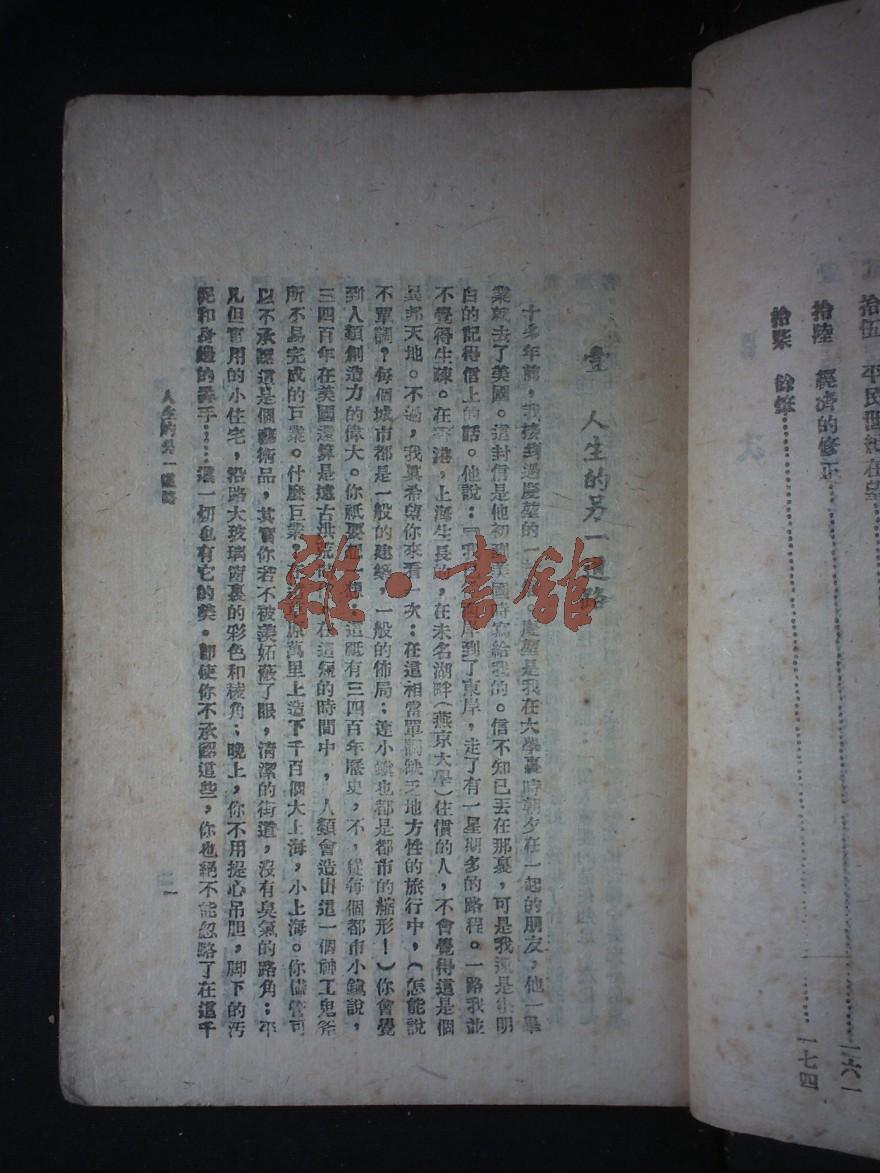 拾伍 平民世紀在望
拾陸 經濟的修正
一六一
拾柒 餘筆
一七四
壹 人生的另一道路
十多年前,我接到過慶堃的一 慶堃是我在大學裏時朝夕在一起的朋友,他一畢
業就去了美國。這封信是他初到美國時寫給我的。信不知已丟在那裏,可是我還是很明
白的記得信上的話。他說:『我 岸到了東岸,走了有一星期多的路程。一路我並
不覺得生疎。在香港,上海生長的,在未名湖畔(燕京大學)住慣的人,不會覺得這是個
異邦天地。不過,我眞希望你來看一次:在這相當單調缺乏地方性的旅行中,(怎能說
不單調?每個城市都是一般的建築,一般的佈局;連小鎮也都是都市的縮形!)你會覺
到人類創造力的偉大。你祇要想一想:這祇有三四百年歷史,不,從每個都市小鎮說,
三四百年在美國還算是遠古洪荒 在這短的時間中,人類會造出這一個神工鬼斧
所不易完成的巨業。什麼巨業?在 原萬里上造下千百個大上海,小上海。你儘管可
以不承認這是個藝術品,其實你若不被羨妬蔽了眼,清潔的街道,沒有臭氣的路角;平
凡但實用的小住宅,沿路大玻璃窗裏的彩色和稜角;晚上,你不用提心吊胆,脚下的汚
泥和身邊的 手……這一切也有它的美。卽使你不承認這些,你也絕不能忽略了在這千
人生的另一道路
一
雜·書館